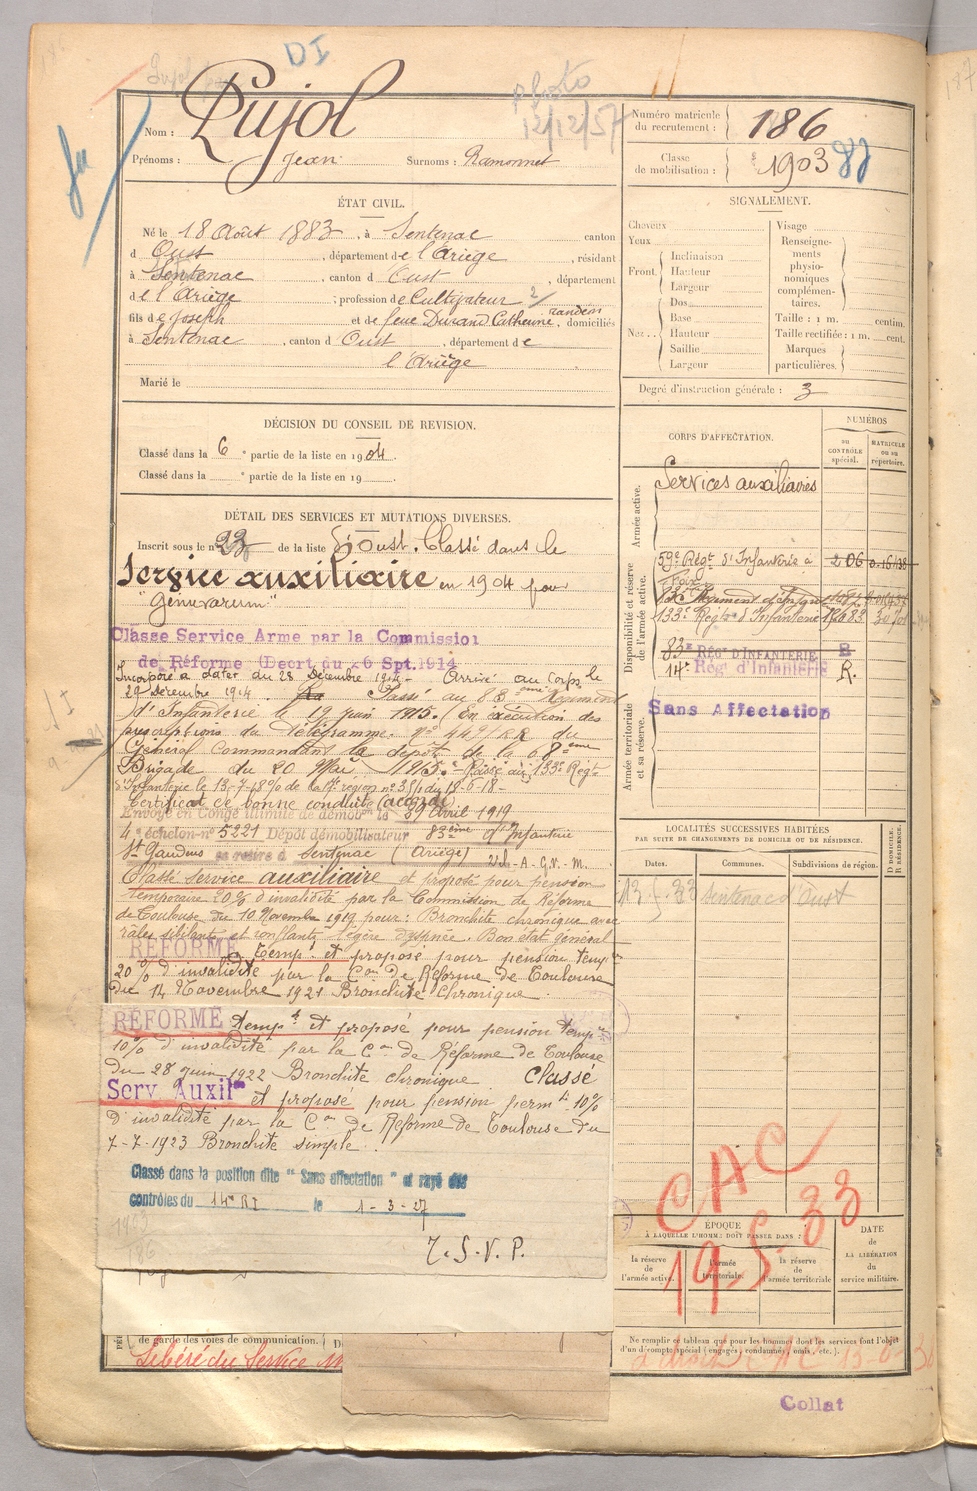 DI
Photo
12/12/57
Nom : Pujol
Prénoms : Jean Surnoms : Ramonnet
Numéro matricule du recrutement : 186
Classe de mobilisation : 1903
ÉTAT CIVIL.
Né le 18 Août 1883, à Sentenac canton
d Oust, département de l'Ariège, résidant
à Sentenac, canton d Oust, département
de l'Ariège ; profession de Cultivateur
fils de Joseph et de feue Durand Catherine, domiciliés
à Sentenac, canton d Oust, département de
l'Ariège
Marié le
SIGNALEMENT.
Cheveux
Yeux
Front. Inclinaison
Hauteur
Largeur
Nez Dos
Base
Hauteur
Saillie
Largeur
Visage
Renseignements physionomiques complémentaires.
Taille : 1 m. centim.
Taille rectifiée : 1 m. cent.
Marques particulières.
Degré d'instruction générale : 3
DÉCISION DU CONSEIL DE REVISION.
Classé dans la 6e partie de la liste en 1904.
Classé dans la e partie de la liste en 19
CORPS D'AFFECTATION.
NUMÉROS
au CONTRÔLE spécial.
MATRICULE ou au répertoire.
Armée active.
Services auxiliaires
Disponibilité et réserve de l'armée active.
59e Régt d'Infanterie à Foix 206
133e Régt d'Infanterie
83e RÉGt D'INFANTERIE
14e Régt d'Infanterie R.
Armée territoriale et sa réserve.
Sans Affectation
DÉTAIL DES SERVICES ET MUTATIONS DIVERSES.
Inscrit sous le n° 23 de la liste d'Oust. Classé dans le
Service auxiliaire en 1904 pour
"Genuvarum"
Classe Service Arme par la Commission
de Réforme (Decrt du 26 Spt. 1914
Incorporé à dater du 28 Décembre 1914. Arrivé au Corps le
29 décembre 1914. Passé au 88ème Régiment
d'Infanterie le 19 juin 1915. En exécution des
prescriptions du Télégramme. n° 4491 RR du
Général Commandant le dépôt de la 68ème
Brigade du 20 Mai 1915. Passé au 133e Régt
d'Infanterie le 13-7-18 de la 17e région du 18-6-18
Certificat de bonne conduite accordé
Envoyé en Congé illimité de démobon le Avril 1919
4e échelon n° 5221 Dépôt démobilisateur 83ème d'Infanterie
St Gaudens se retire à Sentenac (Ariège)
Classé service auxiliaire et proposé pour pension
temporaire 20% d'invalidité par la Commission de Réforme
de Toulouse du 10 Novembre 1919 pour : Bronchite chronique avec
râles sibilants et ronflants légère dyspnée. Bon état général
RÉFORMÉ tempt et proposé pour pension tempre
20% d'invalidité par la Con de Réforme de Toulouse
du 14 Novembre 1921 Bronchite Chronique
RÉFORMÉ tempt et proposé pour pension tempre
10% d'invalidité par la Con de Réforme de Toulouse
du 28 juin 1922 Bronchite chronique. Classé
Serv Auxilre et proposé pour pension permte 10%
d'invalidité par la Con de Réforme de Toulouse du
7-7-1923 Bronchite simple.
Classé dans la position dite "Sans affectation" et rayé des
contrôles du 14e RI le 1-3-27
1903
186
T.S.V.P.
LOCALITÉS SUCCESSIVES HABITÉES
PAR SUITE DE CHANGEMENTS DE DOMICILE OU DE RÉSIDENCE.
Dates. Communes. Subdivisions de région. D DOMICILE. R RÉSIDENCE.
Sentenac d'Oust
CAC
19-5-33
ÉPOQUE
À LAQUELLE L'HOMME DOIT PASSER DANS :
la réserve de l'armée active.
l'armée territoriale.
la réserve de l'armée territoriale
DATE de LA LIBÉRATION du service militaire.
Ne remplir ce tableau que pour les hommes dont les services font l'objet
d'un décompte spécial (engagés, condamnés, omis, etc.).
de garde des voies de communication.
Libéré du Service
Collat